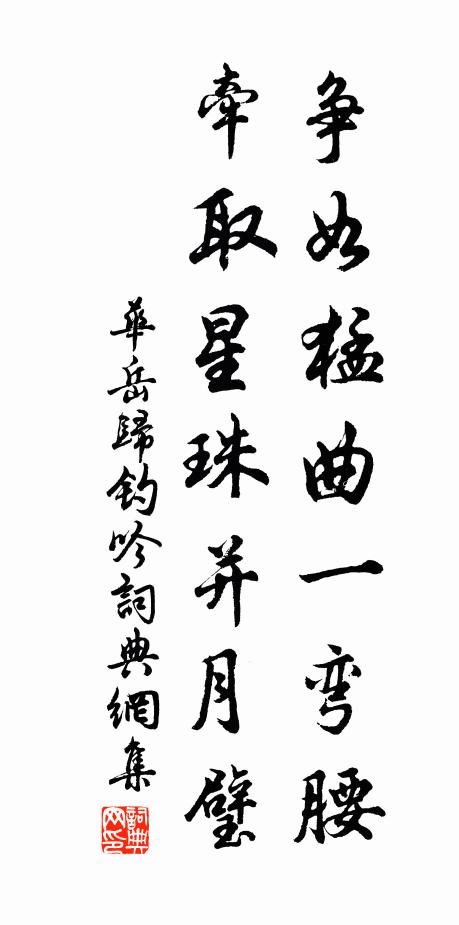 争如猛曲一弯腰
牵取星珠并月璧
華岳歸钓吟詞典網集
詞典
网印